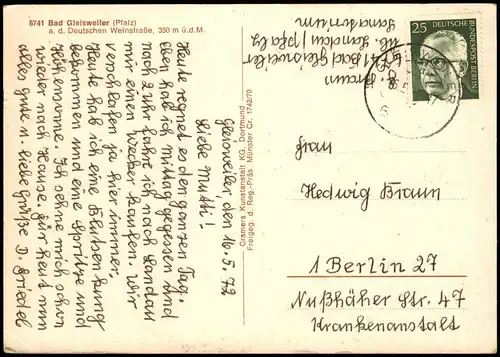 6741 Bad Gleisweiler (Pfalz)
a. d. Deutschen Weinstraße, 350 m ü.d.M.
Gleisweiler, den 16.5.72
Liebe Mutti!
Heute regnet es den ganzen Tag.
Eben hab ich Mittag gegessen und
nach 2 Uhr fahre ich nach Landau
mir einen Wecker kaufen. Wir
verschlafen ja hier immer.
Heute hab ich eine Blutsenkung
bekommen und eine Spritze und
Höhensonne. Ich sehne mich schon
wieder nach Hause. Für heut nun
alles gute u. liebe Grüße D. Friedel
Cramers Kunstanstalt KG, Dortmund
Freigeg. d. Reg.-Präs. Münster Cr. 1742/70
Braun
6741 Bad Gleisweiler
üb. Landau/Pfalz
Sanatorium
25
DEUTSCHE
BUNDESPOST BERLIN
Frau
Hedwig Braun
1 Berlin 27
Nußhäher Str. 47
Krankenanstalt